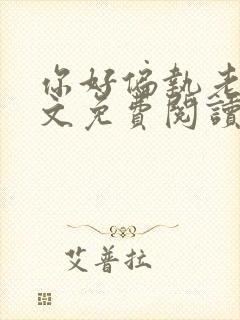 你好偏執老
文免費閱讀
艾普拉